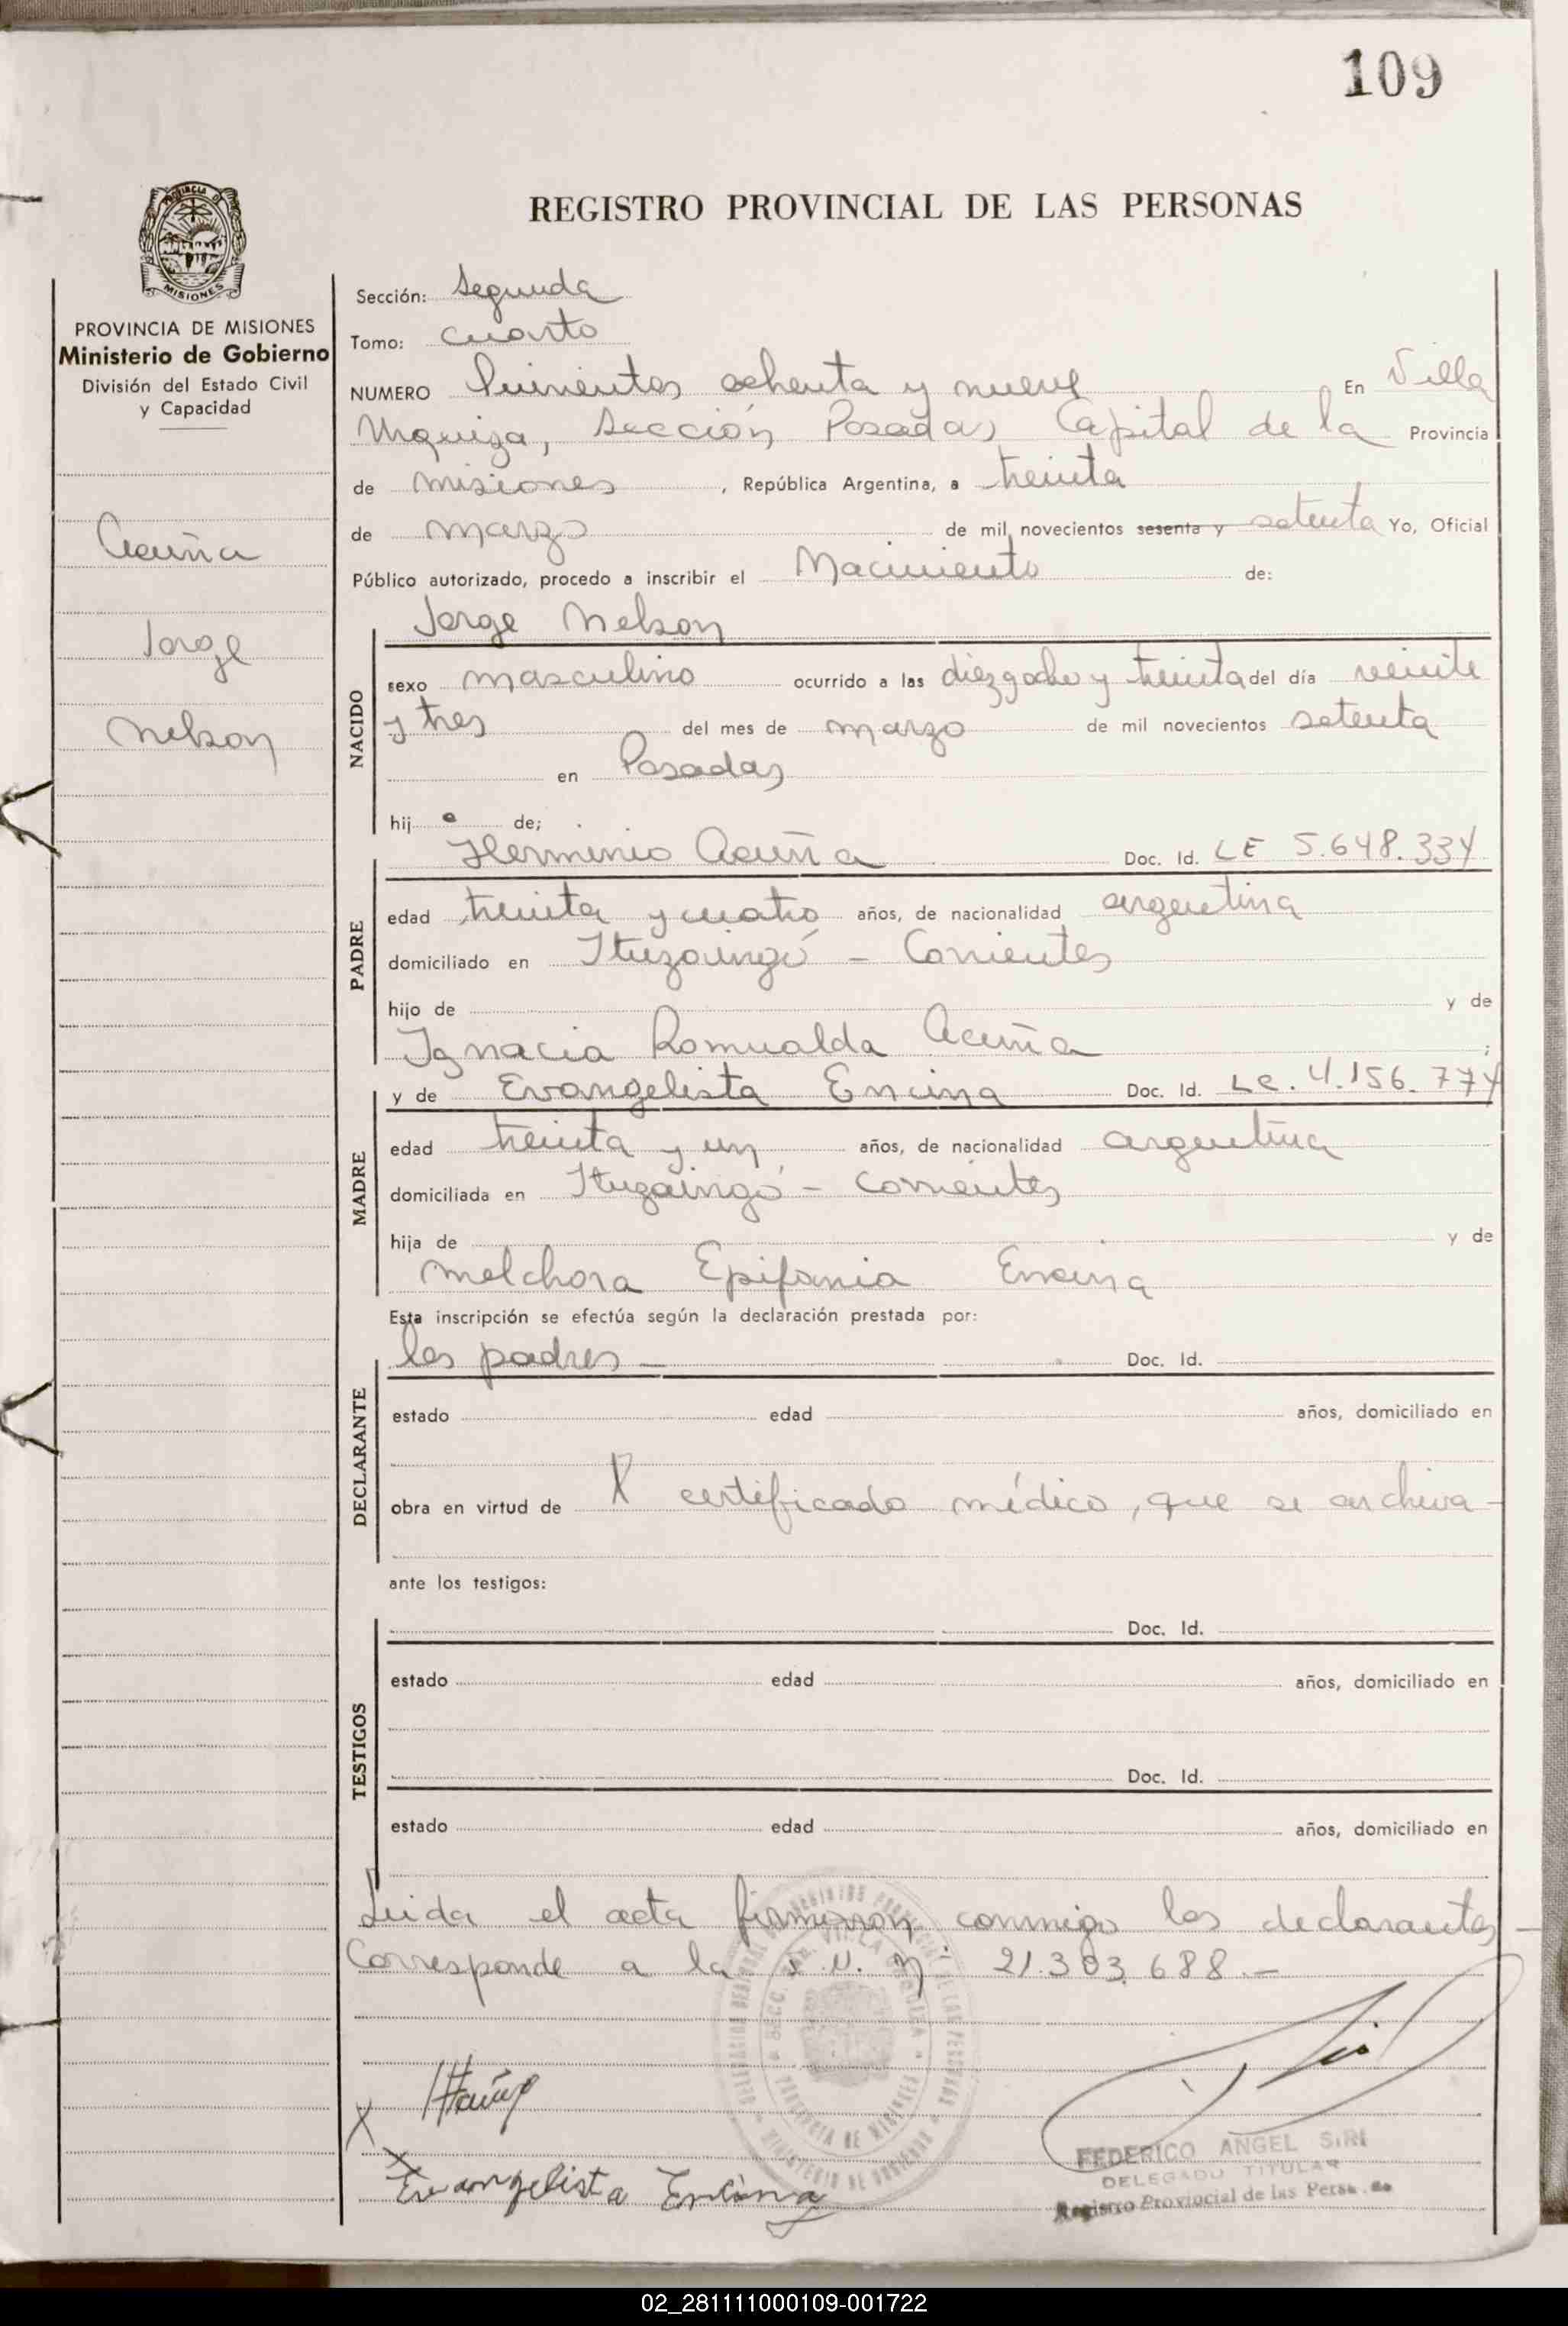 109
PROVINCIA DE
MISIONES
REGISTRO PROVINCIAL DE LAS PERSONAS
PROVINCIA DE MISIONES
Ministerio de Gobierno
División del Estado Civil
y Capacidad
Acuña
Jorge
Nelson
Sección: Segunda
Tomo: Cuarto
NUMERO Quinientos ochenta y nueve En Villa
Urquiza, Sección Posadas Capital de la Provincia
de Misiones, República Argentina, a treinta
de marzo de mil novecientos sesenta y setenta Yo, Oficial
Público autorizado, procedo a inscribir el Nacimiento de:
NACIDO
Jorge Nelson
sexo masculino ocurrido a las diez y ocho y treinta del día veinte
y tres del mes de marzo de mil novecientos setenta
en Posadas
hijo de;
PADRE
Herminio Acuña Doc. Id. LE 5.648.334
edad treinta y cuatro años, de nacionalidad argentina
domiciliado en Ituzaingó - Corrientes
hijo de y de
Ignacia Romualda Acuña ;
MADRE
y de Evangelista Encina Doc. Id. LC. 4.156.774
edad treinta y un años, de nacionalidad argentina
domiciliada en Ituzaingó - Corrientes
hija de y de
Melchora Epifania Encina
Esta inscripción se efectúa según la declaración prestada por:
DECLARANTE
los padres — Doc. Id.
estado edad años, domiciliado en
obra en virtud de X certificado médico, que se archiva -
ante los testigos:
TESTIGOS
Doc. Id.
estado edad años, domiciliado en
Doc. Id.
estado edad años, domiciliado en
Leida el acta firmaron conmigo los declarantes -
Corresponde a la nº 21.303.688.-
X
X
Evangelista Encina
PROVINCIA DE MISIONES
FEDERICO ANGEL SIRI
DELEGADO TITULAR
Registro Provincial de las
02_281111000109-001722